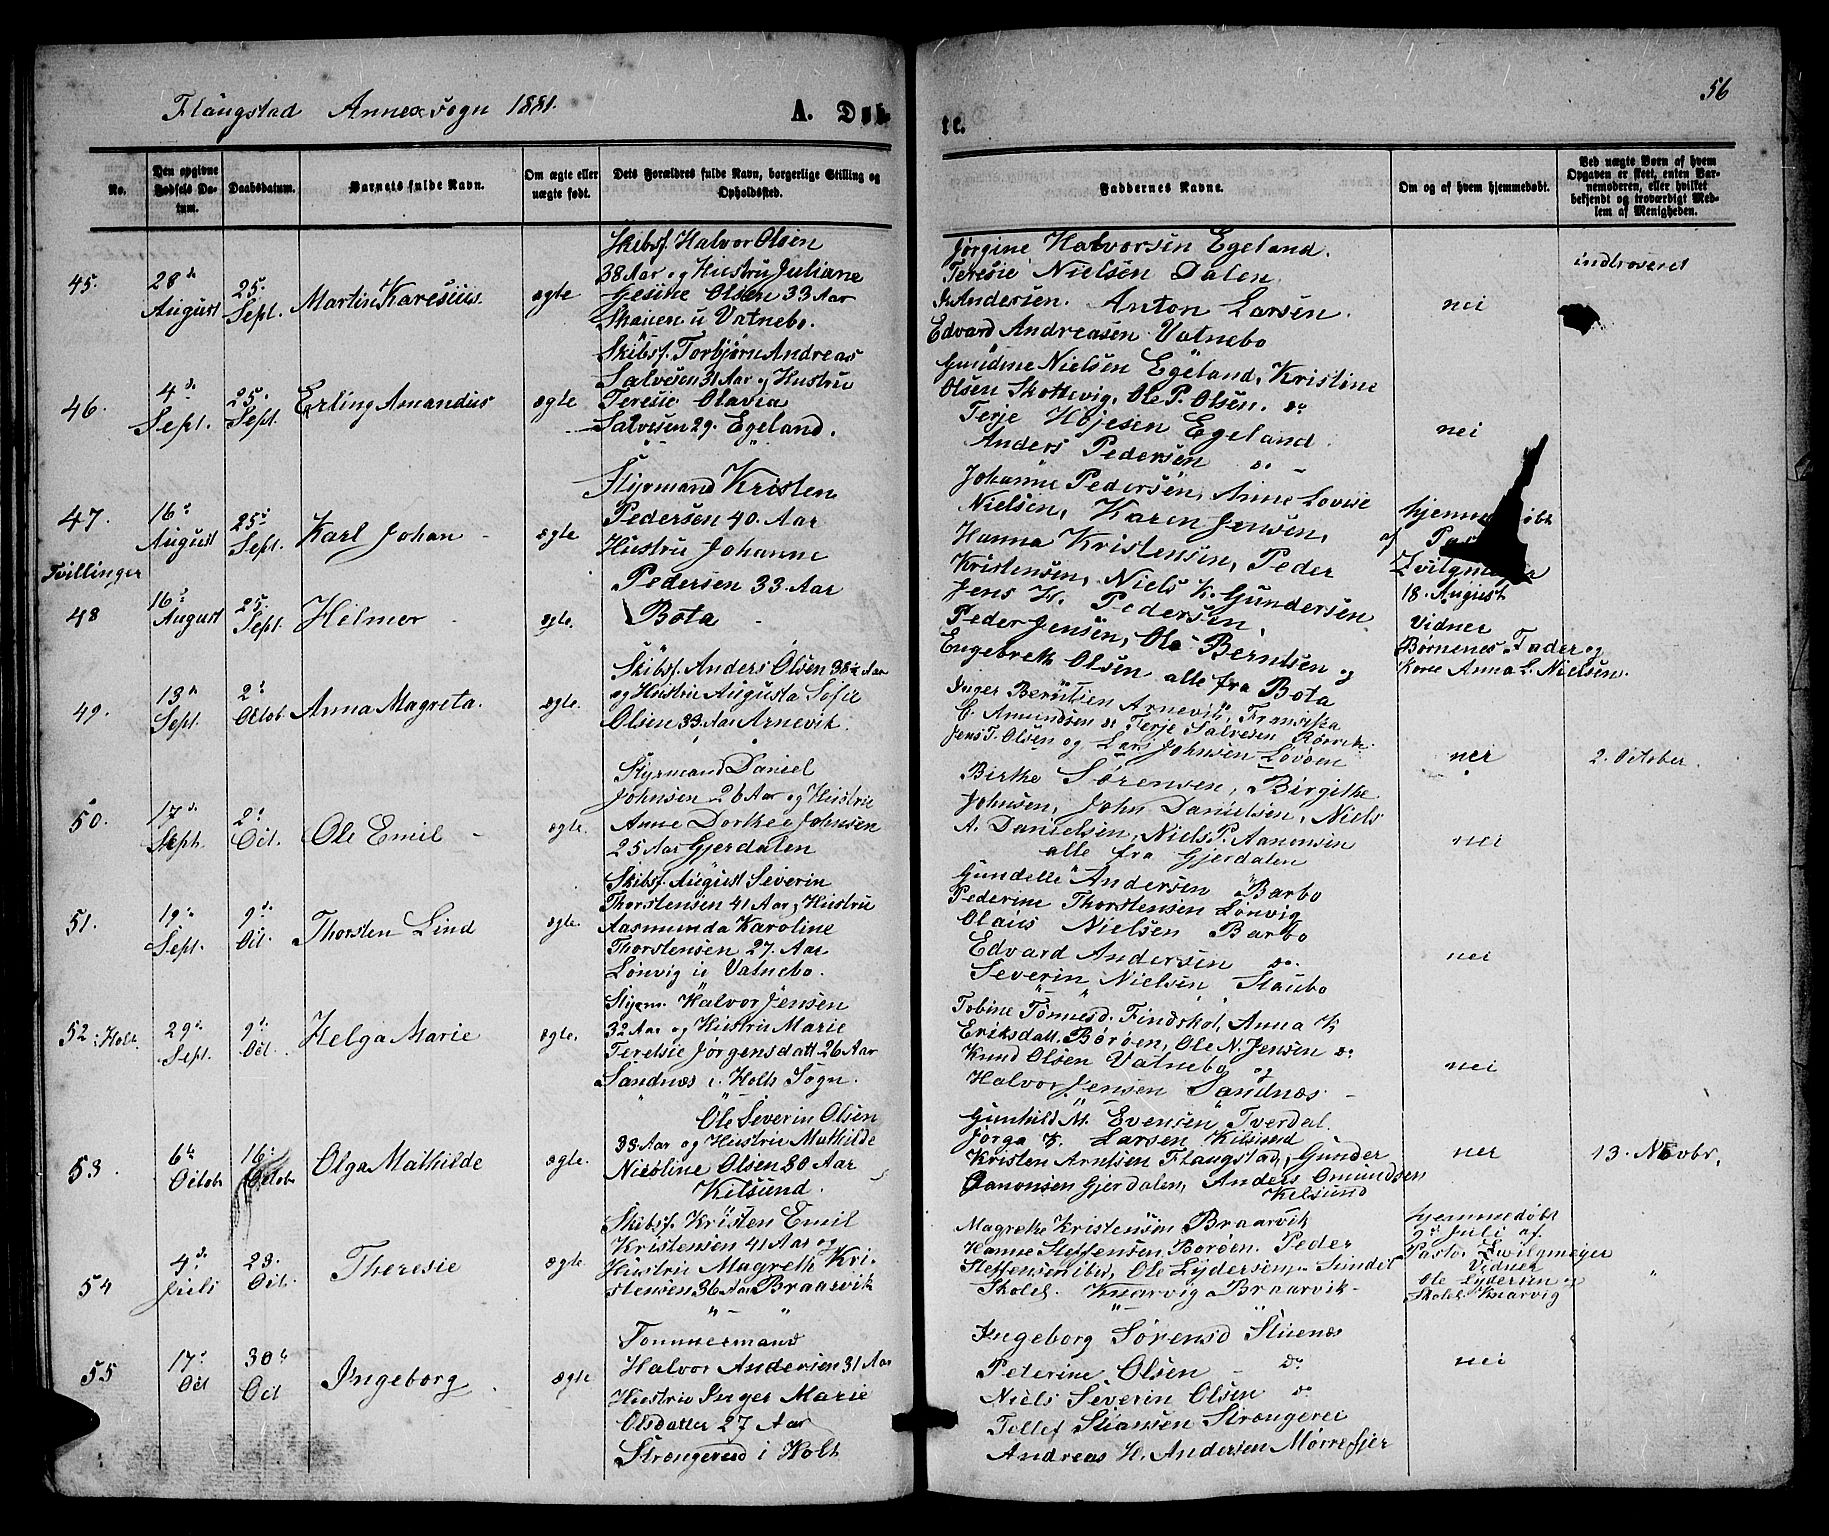 Flangstad Annexsogn 1881.
A. Døb-
te.
56
No.
Den opgivne Fødsels Datum.
Daabsdatum.
Barnets fulde Navn.
Om ægte eller uægte født.
Dets Forældres fulde Navn, borgerlige Stilling og Opholdssted.
Faddernes Navne.
Om og af hvem hjemmedøbt.
Ved uægte Børn af hvem Opgaven er skeet, enten Barnemoderen, eller hvilket bekjendt og troværdigt Medlem af Menigheden.
45.
28de August
25. Sept.
Martin Karesius
ægte
Skibsf. Halvor Olsen
38 Aar og Hustru Juliane
Gesine Olsen 33 Aar
Skaien u Vatnebo.
Jørgine Halvorsen Egeland.
Teresie Nielsen Dalen
Andersen. Anton Larsen.
Edvard Andreasen Vatnebo
nei
indtroveret
46.
4de Sept.
25. Sept.
Erling Amandus
ægte
Skibsf. Torbjørn Andreas
Salvesen 31 Aar og Hustru
Teresie Olavia
Salvesen 29. Egeland.
Gundine Nielsen Egeland, Kristine
Olsen Skottevig, Ole P. Olsen. do
Terje Højesen Egeland.
Anders Pedersen do -
nei
47.
16. August
25. Sept.
Karl Johan -
ægte
Styrmand Kristen
Pedersen 40. Aar
Hustru Johanne
Pedersen 33 Aar
Bota -
Tvillinger
48
16. August
25. Sept.
Helmer -
ægte.
Johanne Pedersen, Anne Lovise
Nielsen, Karen Jensen,
Hanna Kristensen, Peder
Kristensen, Niels K. Gundersen
Jens H. Pedersen,
Peder Jensen, Ole Berntsen og
Engebreth Olsen alle fra Bota
hjemmedøbt
af
18. August
Vidner
Børnenes Fader og
Kone Anna L. Nielsen.
49.
13de Sept.
2. Octob.
Anna Magreta.
ægte.
Skibsf. Anders Olsen 38½ Aar
og Hustru Augusta Sofie
Olsen 33 Aar Arnevik.
Inger Berntsen Arnevik, Franciska
C. Amundsen do Terje Salvesen Rørvik
Jens T. Olsen og Lars Johnsen Lovøen
nei
2. October.
50.
17de Sept.
2. Oct.
Ole Emil -
ægte.
Styrmand Daniel
Johnsen 26 Aar og Hustru
Anne Dorthea Johnsen
25 Aar Gjerdalen
Birthe Sørensen, Birgithe
Johnsen, John Danielsen, Niels
A. Danielsen, Niels P. Aanonsen
alle fra Gjerdalen
nei
51.
19. Sept.
9de Oct.
Thorsten Lind
ægte.
Skibsf. August Severin
Thorstensen 41 Aar og Hustru
Aasmunda Karoline
Thorstensen 27. Aar
Lønvig u Vatnebo.
Gundelle Andersen Barbo
Pederine Thorstensen Lønvig
Olaus Nielsen Barbo
Edvard Andersen do.
Severin Nielsen, Staubo
nei
52: Holt.
29de Sept.
9de Oct.
Helga Marie
ægte.
Styrm. Halvor Jensen
32 Aar og Hustru Marie
Terelsie Jørgensdatt 26 Aar
Sandnæs i Holts Sogn.
Tobine Tønnesd. Findshol, Anna K
Eriksdatt. Børøen, Ole N. Jensen do
Knud Olsen Vatnebo og
Halvor Jensen Sandnæs -
nei
53.
6te Octob
16. Octob
Olga Mathilde
ægte.
Ole Severin Olsen
38 Aar og Hustru Mathilde
Nicoline Olsen 30 Aar
Kilsund.
Gunhild M. Evensen Tverdal.
Jørga K. Larsen Kilsund
Kristen Arntsen Flangstad, Gunder
Aanonsen Gjerdalen, Anders Omundsen
Kilsund
nei
13. Novbr.
54
4de Juli
23. Oct.
Theresie
ægte.
Skibsf. Kristen Emil
Kristensen 41 Aar og
Hustru Magreth Kri-
stensen 36 Aar Braarvik
Magrethe Kristensen Braarvik
Hanne Steffensen Borøen. Peder
Steffensen ibid, Ole Lydersen
Skolel. Knarvig o Braarvik -
hjemmedøbt
9. Juli af
Pastor Zwilgmeyer
Vidner
Ole Lydersen og
Skolel Knarvig
"
55
17. Oct
30te Oct
Ingeborg.
ægte
Tømmermand
Halvor Andersen 31 Aar
Hustru Inger Marie
Olsdatter 27 Aar
Strengereid i Holt
Ingeborg Sørensd Stuenæs
Peterine Olsen - do
Niels Severin Olsen do
Tellef Stiansen Strengerei
Andreas H. Andersen Mørrefjer
nei